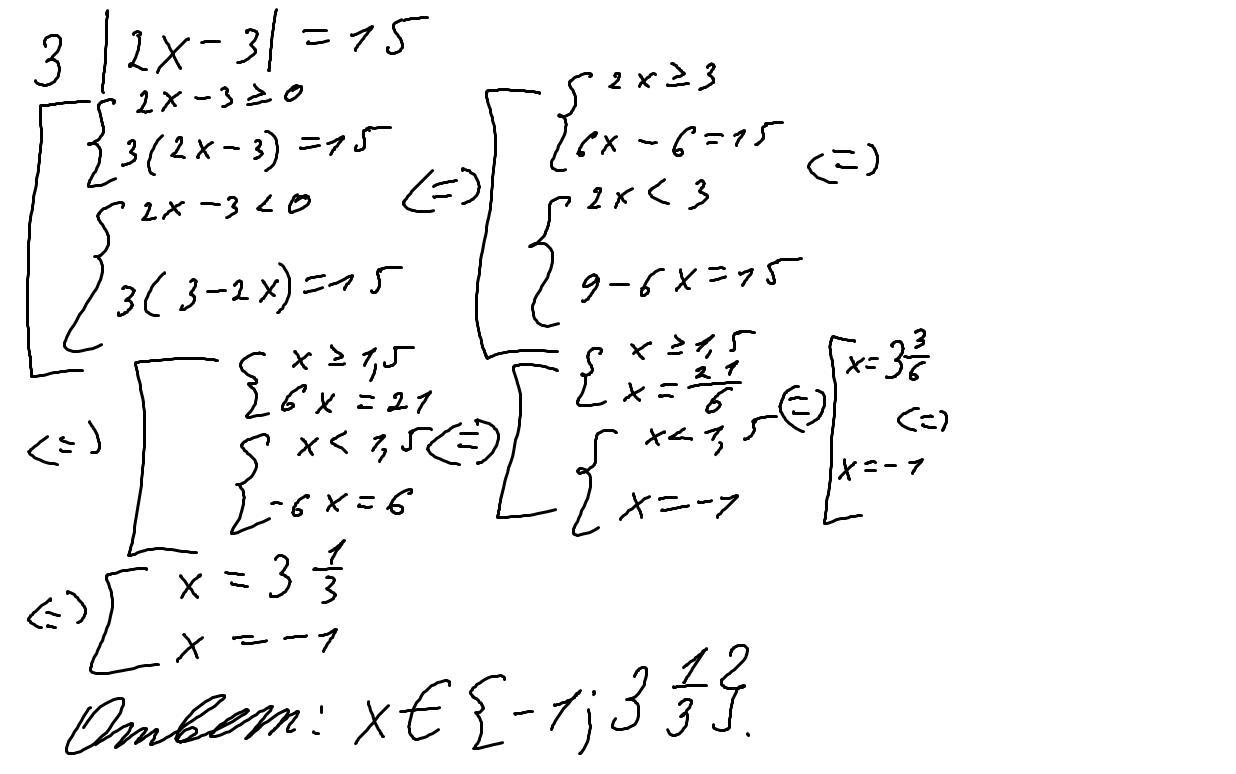 3 |2x-3| = 15
[ { 2x-3 ≥ 0
3(2x-3) = 15
{ 2x-3 < 0
3(3-2x) = 15
<=>
[ { 2x ≥ 3
6x - 6 = 15
{ 2x < 3
9-6x = 15
<=>
<=> [ { x ≥ 1,5
6x = 21
{ x < 1,5
-6x = 6
<=> [ { x ≥ 1,5
x = 21/6
{ x < 1,5
x = -1
<=> [ x = 3 3/6
x = -1
<=>
<=> [ x = 3 1/3
x = -1
Ответ: x ∈ {-1; 3 1/3}.